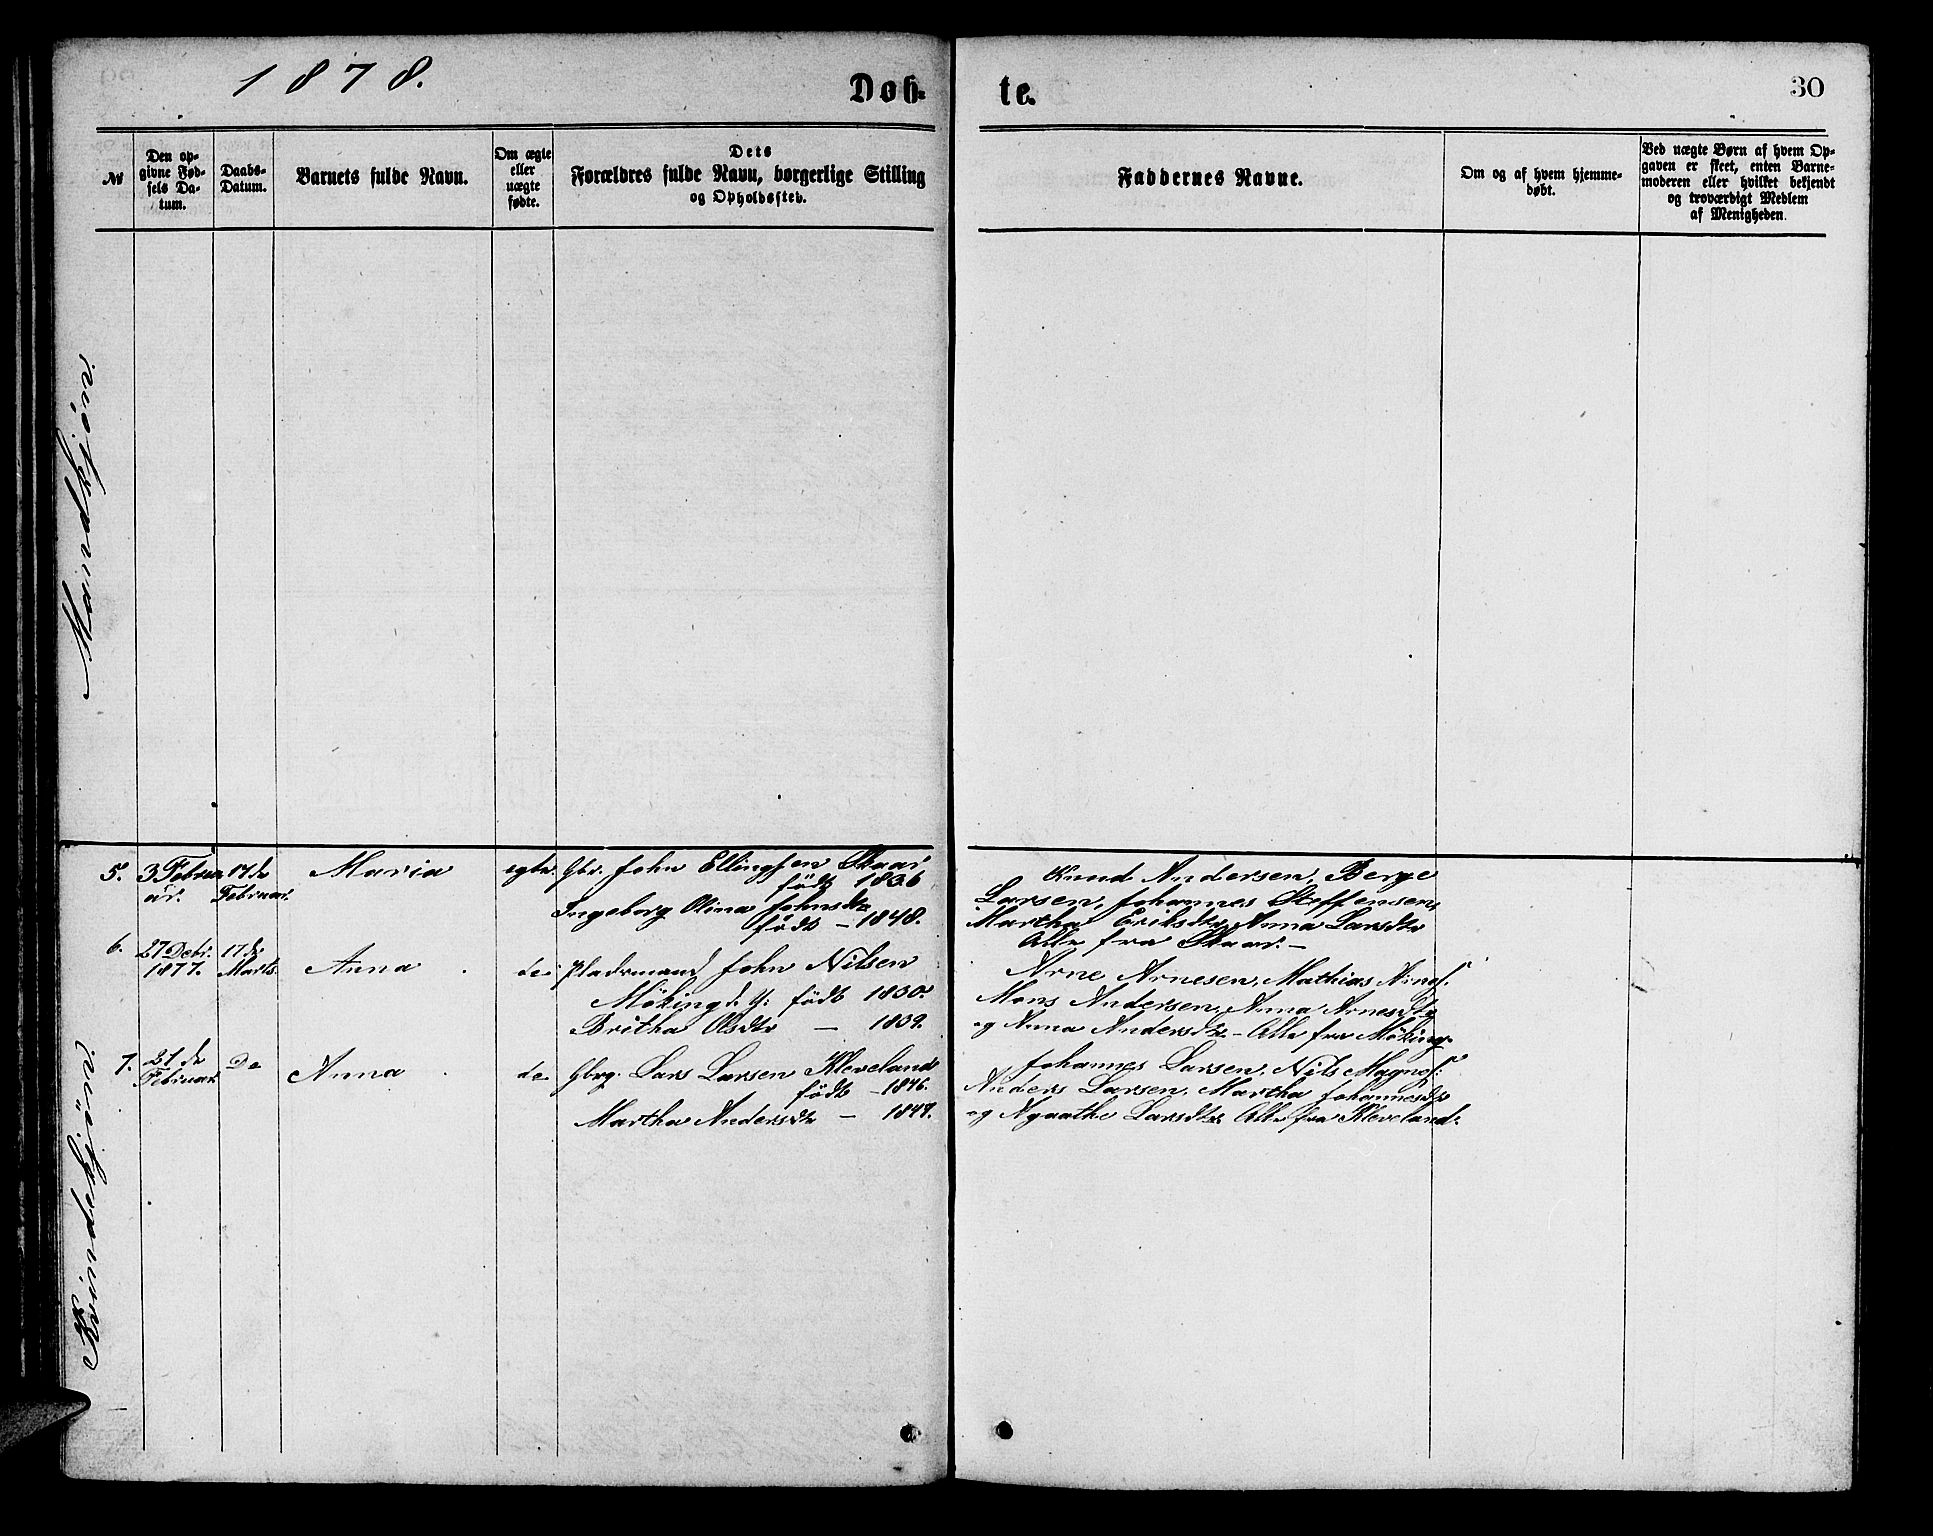 1878.
Døb-
te.
30
№
Den op-
givne Fød-
sels Da-
tum.
Daabs-
Datum.
Barnets fulde Navn.
Om ægte
eller
uægte
fødte.
Dets
Forældres fulde Navn, borgerlige Stilling
og Opholdssted.
Faddernes Navne.
Om og af hvem hjemme-
døbt.
Ved uægte Børn af hvem Op-
gaven er skeet, enten Barne-
moderen eller hvilket bekjendt
og troværdigt Medlem
af Menigheden.
Mandkjön
Kvindekjön
5. 3 Febru-
ar.
17de
Februar.
Maria
egte.
Gbr. John Ellingsen Skaar
födt 1836
Ingeborg Olina Johnsdtr
födt – 1848.
Knud Andersen, Berge
Larsen, Johannes Steffensen,
Martha Eriksdtr, Anna Larsdtr
Alle fra Skaar. –
6. 27 Debr.
1877.
17de
Marts.
Anna
de
Pladsmand John Nilsen
Möking födt 1830.
Britha Olsdtr – 1839.
Arne Arnesen, Mathias
Mons Andersen, Anna Arnesdtr
og Anna Andersdtr – Alle fra Möking.
7. 21de
Februar
De
Anna
de
Gbrg. Lars Larsen Kleveland
födt – 1846.
Martha Andersdtr – 1847.
Johannes Larsen, Nils Magnes:
Anders Larsen, Martha Johannesdtr
og Agaathe Larsdtr. Alle fra Kleveland.